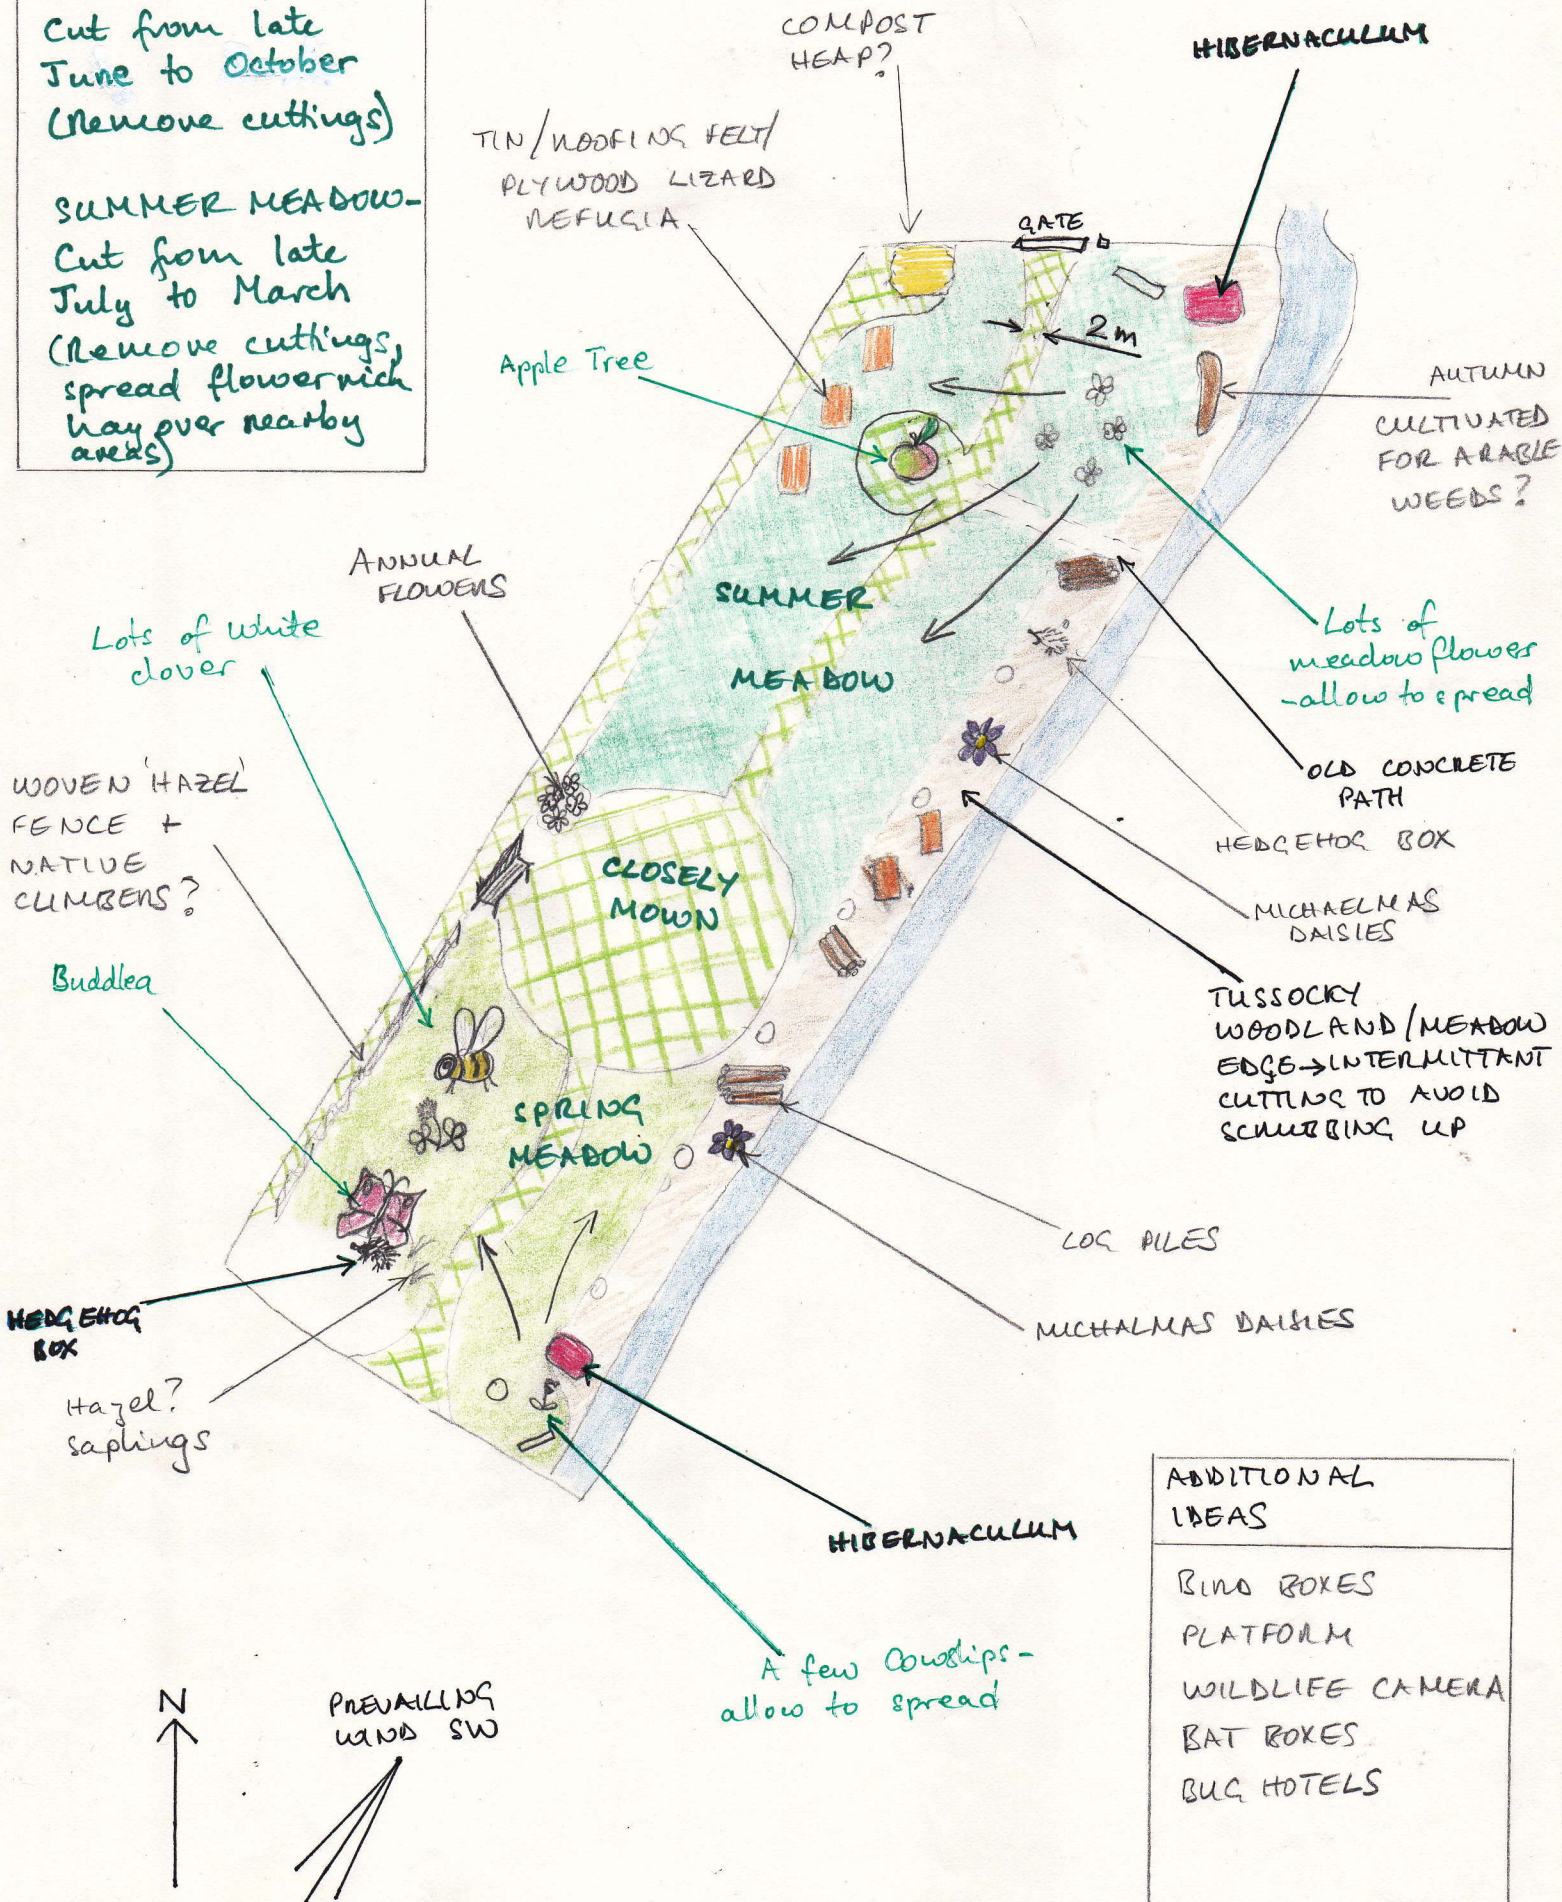 Cut from late
June to October
(Remove cuttings)
SUMMER MEADOW-
Cut from late
July to March
(Remove cuttings,
spread flower rich
hay over nearby
areas)
COMPOST
HEAP?
HIBERNACULUM
TIN/ROOFING FELT/
PLYWOOD LIZARD
REFUGIA
GATE
2m
Apple Tree
AUTUMN
CULTIVATED
FOR ARABLE
WEEDS?
ANNUAL
FLOWERS
SUMMER
MEADOW
Lots of white
clover
Lots of
meadow flower
-allow to spread
OLD CONCRETE
PATH
WOVEN 'HAZEL'
FENCE +
NATIVE
CLIMBERS?
HEDGEHOG BOX
CLOSELY
MOWN
MICHAELMAS
DAISIES
Buddlea
TUSSOCKY
WOODLAND/MEADOW
EDGE→INTERMITTANT
CUTTING TO AVOID
SCRUBBING UP
SPRING
MEADOW
LOG PILES
HEDGEHOG
BOX
MICHALMAS DAISIES
Hazel?
saplings
HIBERNACULUM
A few Cowslips-
allow to spread
ADDITIONAL
IDEAS
BIRD BOXES
PLATFORM
WILDLIFE CAMERA
BAT BOXES
BUG HOTELS
N
PREVAILING
WIND SW